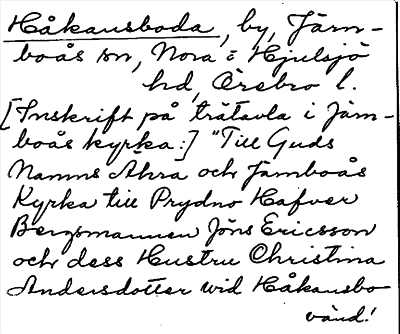 Håkansboda, by, Järn-
boås sn, Nora = Hjulsjö
hd, Örebro l.
[Inskrift på trätavla i Järn-
boås kyrka:] "Till Guds
Namns Ähra och Järnboås
Kyrka till Prydno Hafver
Bergsmannen Jöns Ericsson
och dess Hustru Christina
Andersdotter wid Håkansbo
vänd!